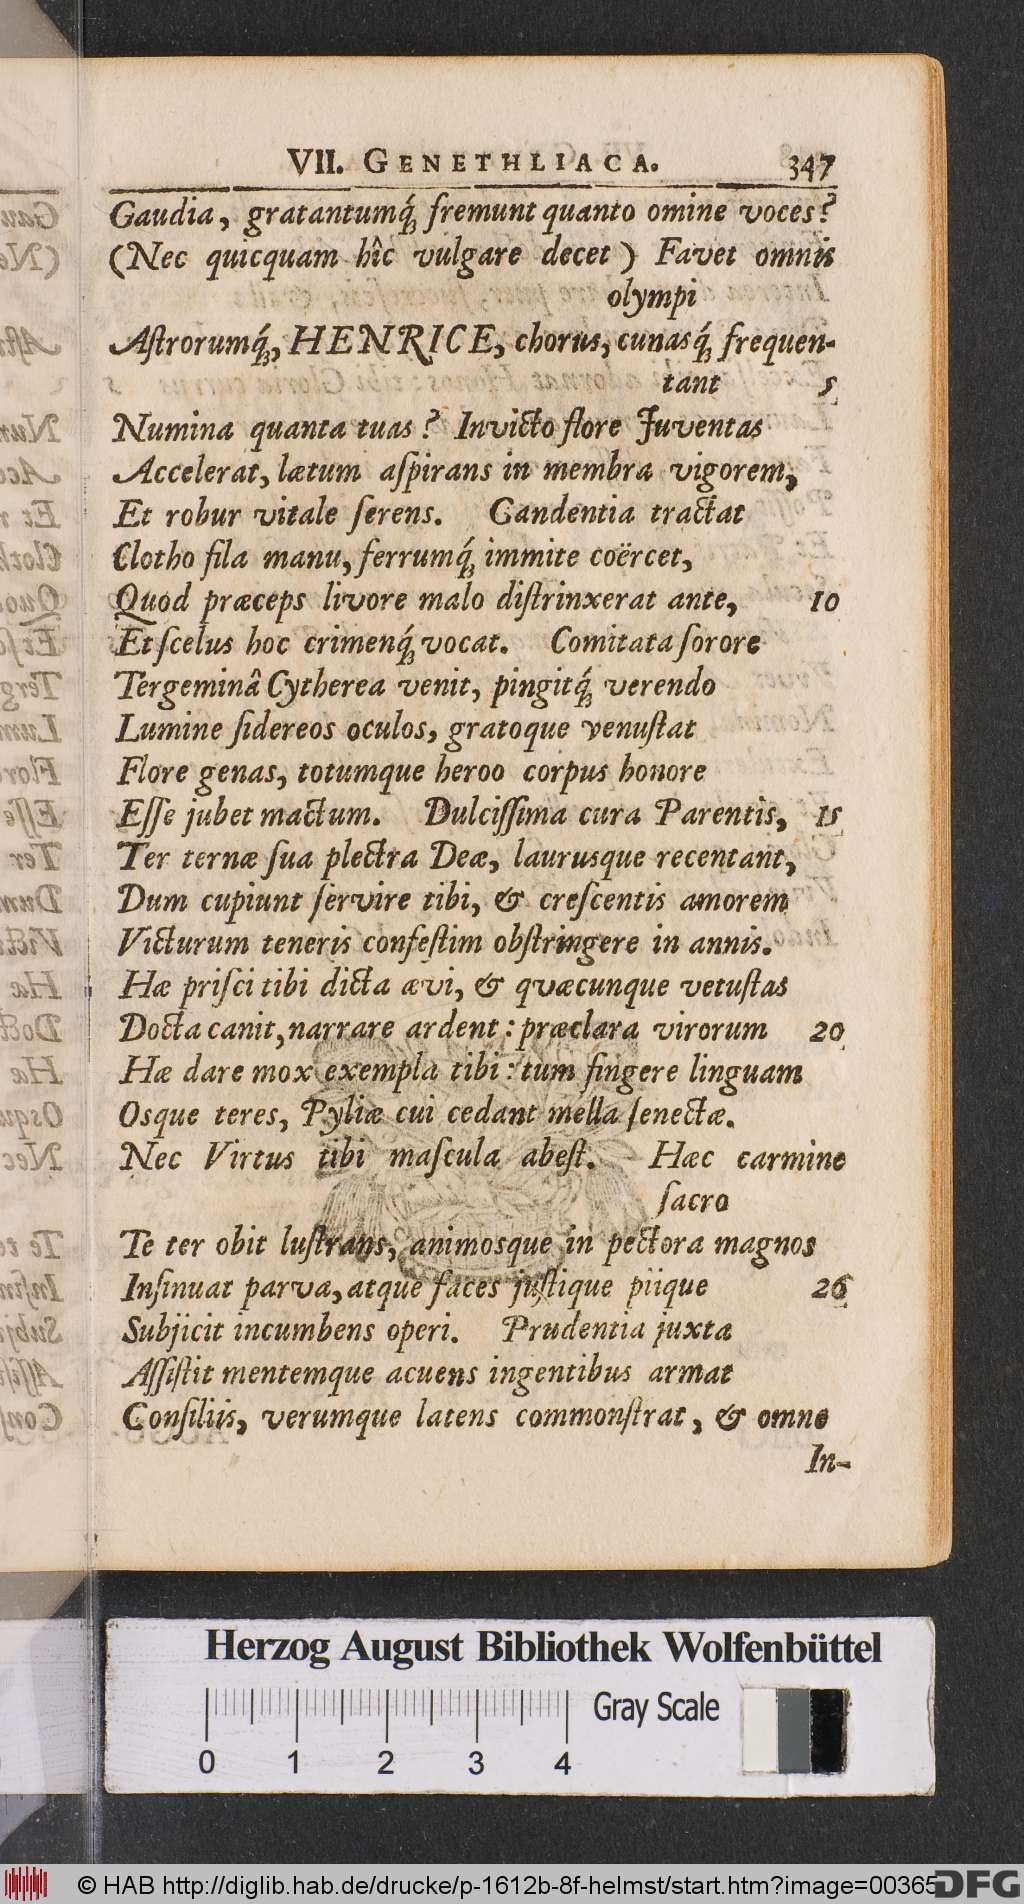 VII. GENETHLIACA. 347
Gaudia, gratantumq́; fremunt quanto omine voces?
(Nec quicquam hîc vulgare decet) Favet omnis
olympi
Aſtrorumq́;, HENRICE, chorus, cunasq́; frequen-
tant 5
Numina quanta tuas? Invicto flore Juventas
Accelerat, lætum aſpirans in membra vigorem,
Et robur vitale ferens. Gandentia tractat
Clotho fila manu, ferrumq́; immite coërcet,
Quod præceps livore malo diſtrinxerat ante, 10
Et ſcelus hoc crimenq́; vocat. Comitata ſorore
Tergeminâ Cytherea venit, pingitq́; verendo
Lumine ſidereos oculos, gratoque venuſtat
Flore genas, totumque heroo corpus honore
Eſſe jubet mactum. Dulciſſima cura Parentis, 15
Ter ternæ ſua plectra Deæ, laurusque recentant,
Dum cupiunt ſervire tibi, & creſcentis amorem
Victurum teneris confeſtim obſtringere in annis.
Hæ priſci tibi dicta ævi, & quæcunque vetuſtas
Docta canit, narrare ardent: præclara virorum 20
Hæ dare mox exempla tibi: tum fingere linguam
Osque teres, Pyliæ cui cedant mella ſenectæ.
Nec Virtus tibi maſcula abeſt. Hæc carmine
ſacro
Te ter obit luſtrans, animosque in pectora magnos
Inſinuat parva, atque faces juſtique piique 26
Subjicit incumbens operi. Prudentia juxta
Aſſiſtit mentemque acuens ingentibus armat
Conſiliis, verumque latens commonſtrat, & omne
In-
Herzog August Bibliothek Wolfenbüttel
Gray Scale
0 1 2 3 4
© HAB http://diglib.hab.de/drucke/p-1612b-8f-helmst/start.htm?image=00365
DFG